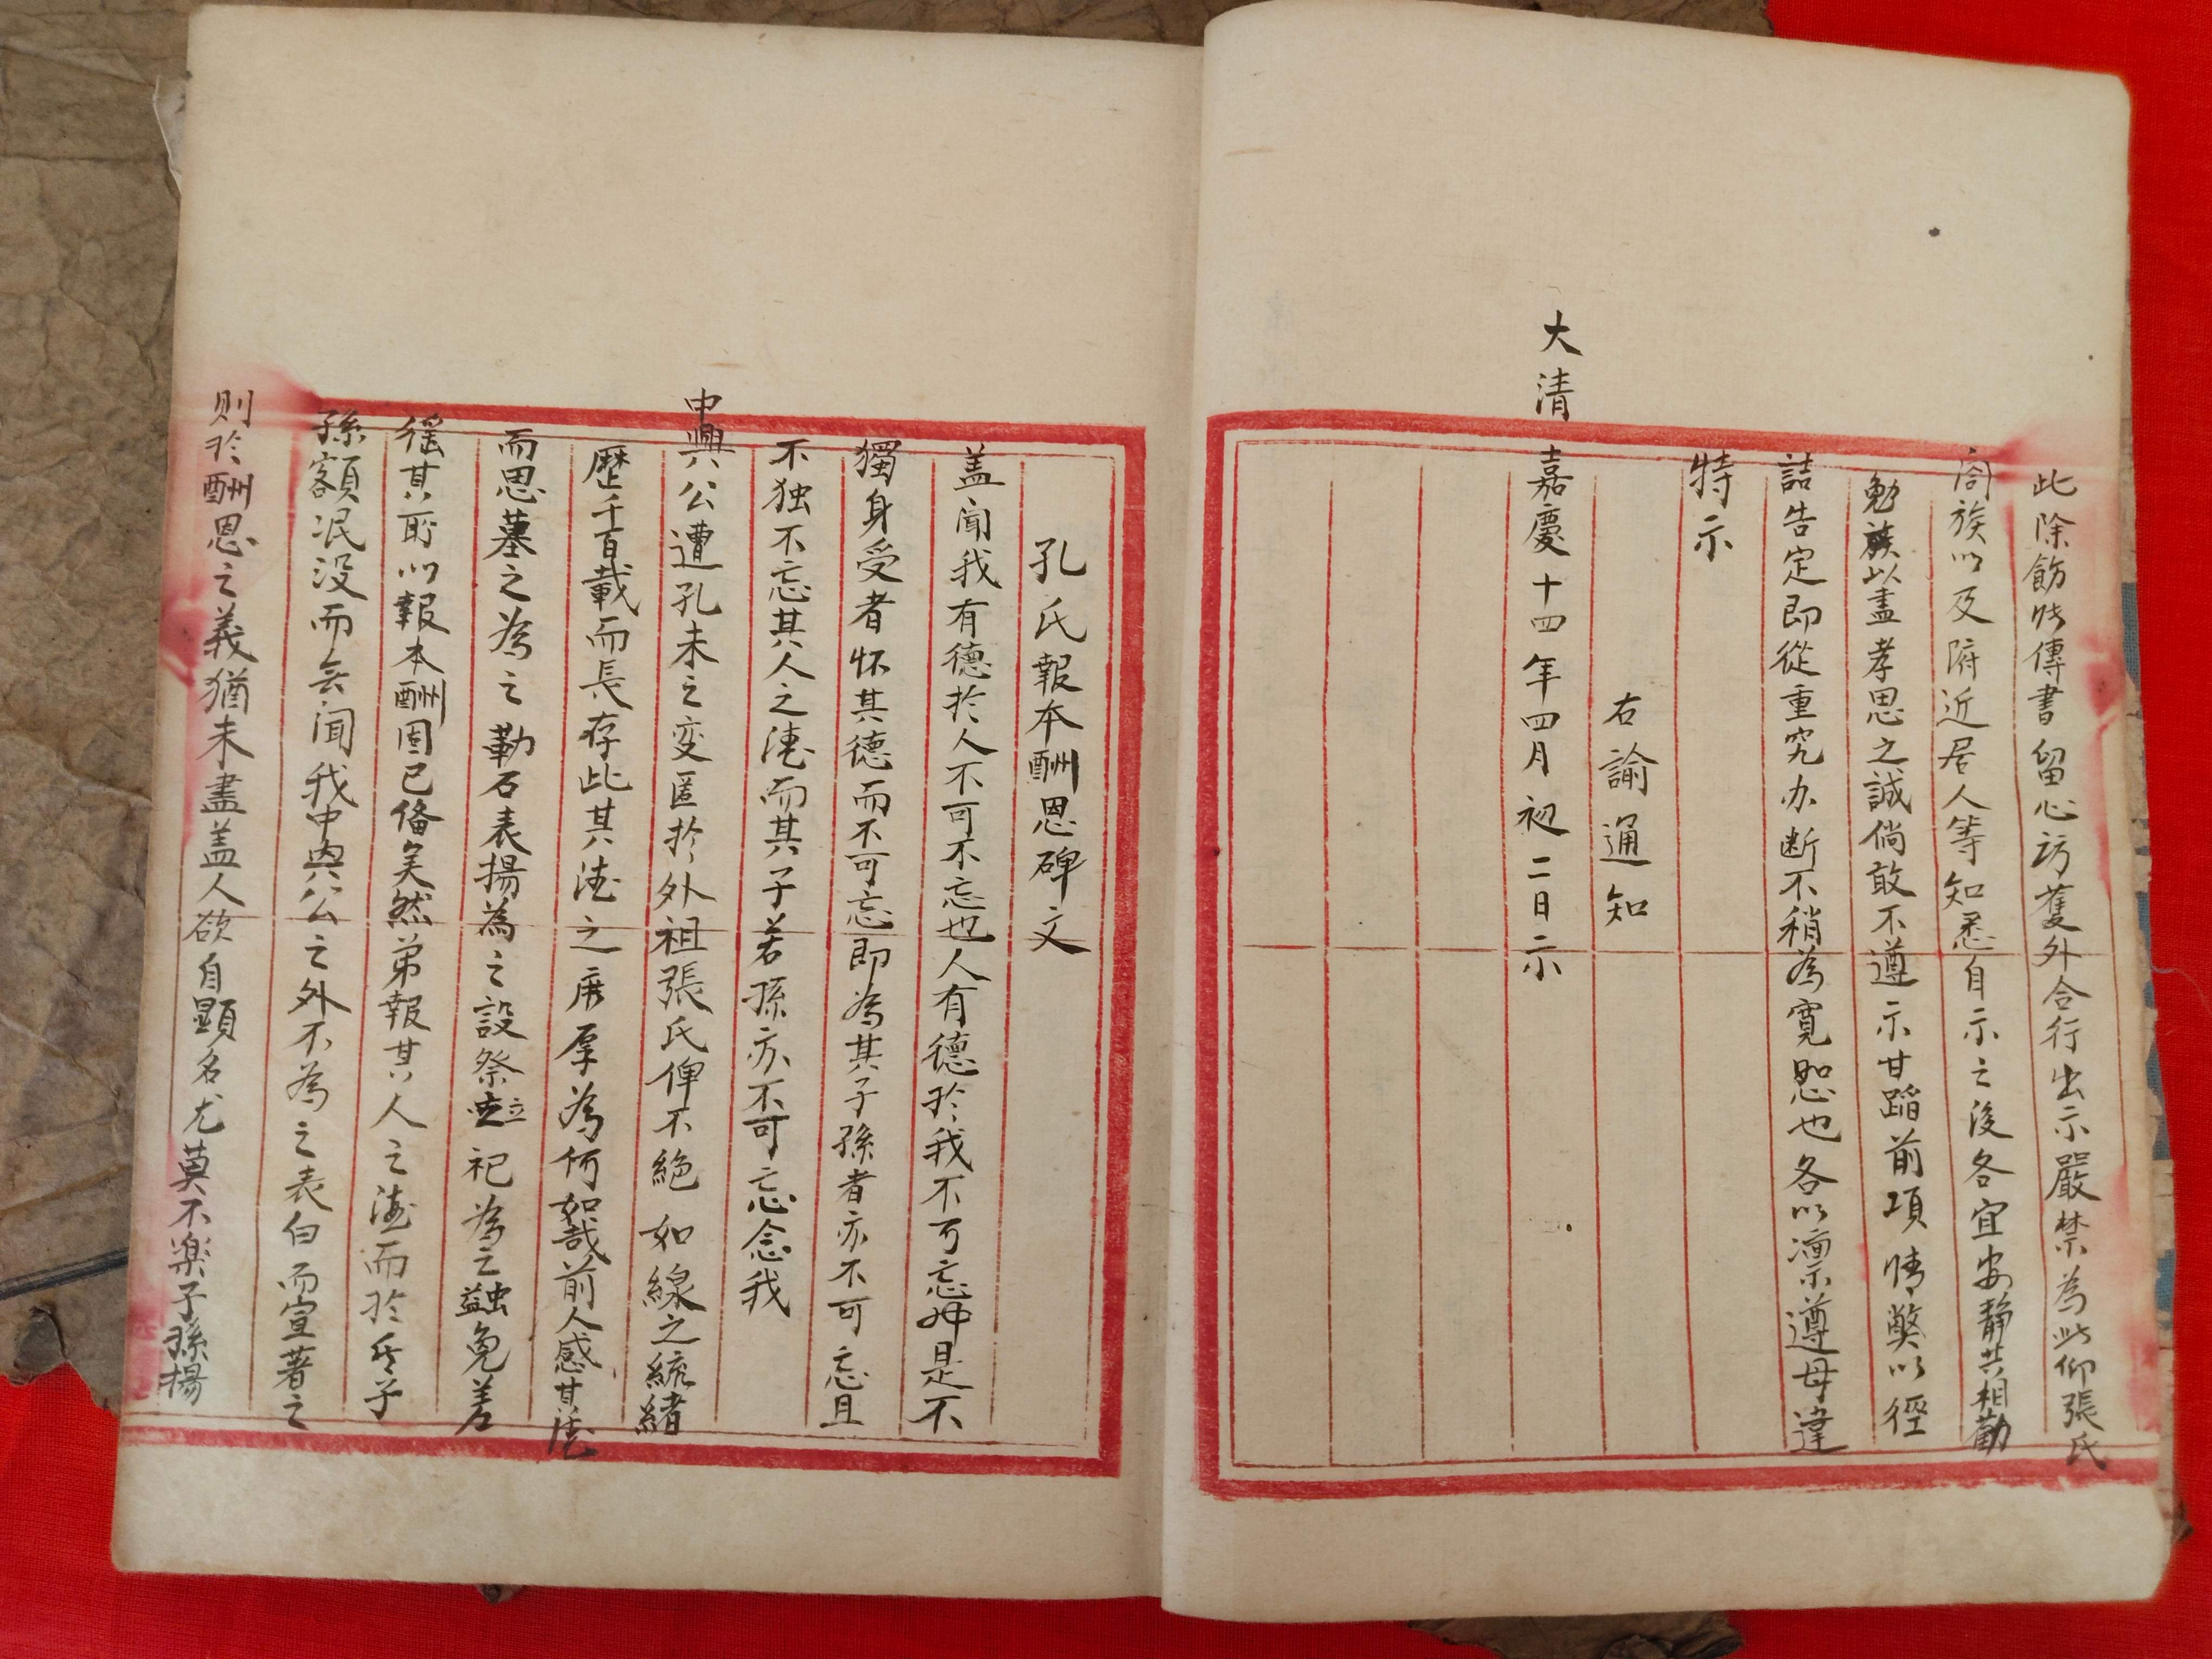 此除飭 傳書留心訪獲外合行出示嚴禁為此仰張氏
闔族以及附近居人等知悉自示之後各宜安静共相勸
勉族以盡孝思之誠倘敢不遵示甘蹈前項情獘以徑
詰告定即從重究办断不稍為寬恕也各以凛示遵毋違
特示
右諭通知
大清嘉慶十四年四月初二日示
孔氏報本酬恩碑文
盖闻我有德於人不可不忘也人有德於我不可忘 是不
獨身受者怀其德而不可忘即為其子孫者亦不可忘且
不独不忘其人之德而其子若孫亦不可忘念我
中興公遭孔末之变匿於外祖張氏俾不絕如線之統緒
歴千百載而長存此其德之 厚為何如哉前人感其德
而思墓之為之勒石表揚為之設祭 祀為之蠲免差
徭其所以報本酬 已俻矣然弟報其人之德而於 子
孫 泯没而无闻我中興公之外不為之表白而宣著之
則於酬恩之義猶未盡盖人欲自顕名尤莫不楽子孫揚